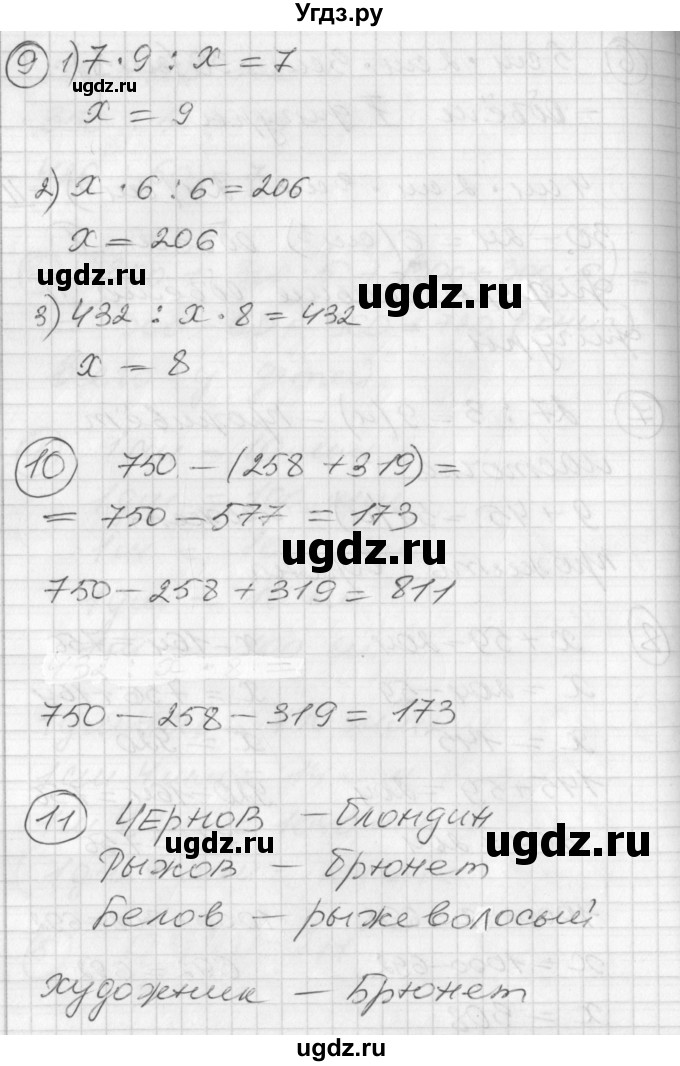 Угдз.ру
9 1) 7 · 9 : x = 7
ugdz.ru
x = 9
2) x · 6 : 6 = 206
x = 206
ugdz.ru
ugdz.ru
3) 432 : x · 8 = 432
x = 8
10 750 - (258 + 319) =
= 750 - 577 = 173
ugdz.ru
750 - 258 + 319 = 811
750 - 258 - 319 = 173
11 Чернов - блондин
ugdz.ru
ugdz.ru
Рыжов - брюнет
Белов - рыжеволосый
художник - Брюнет
ugdz.ru